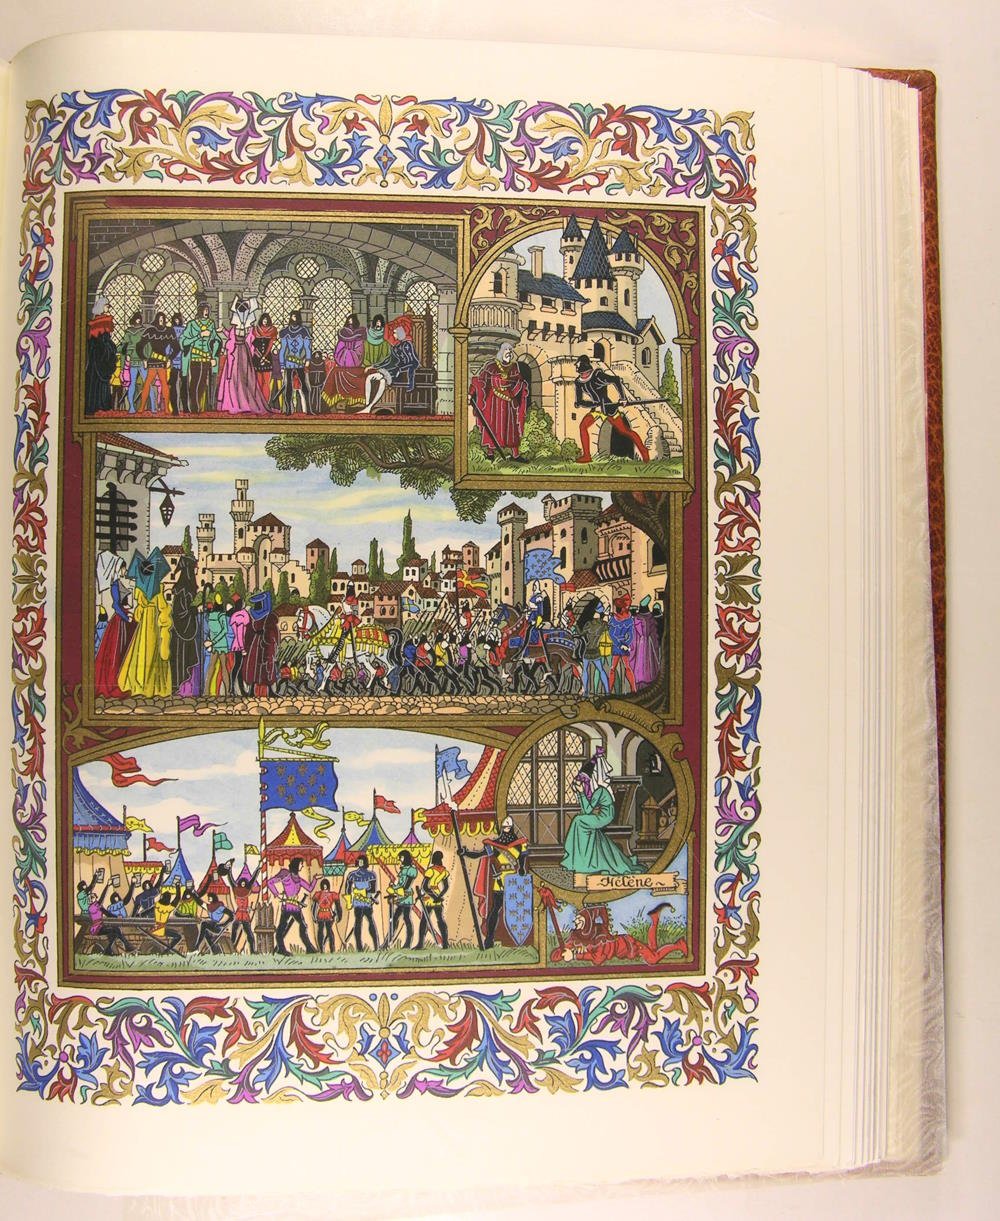 Hélène